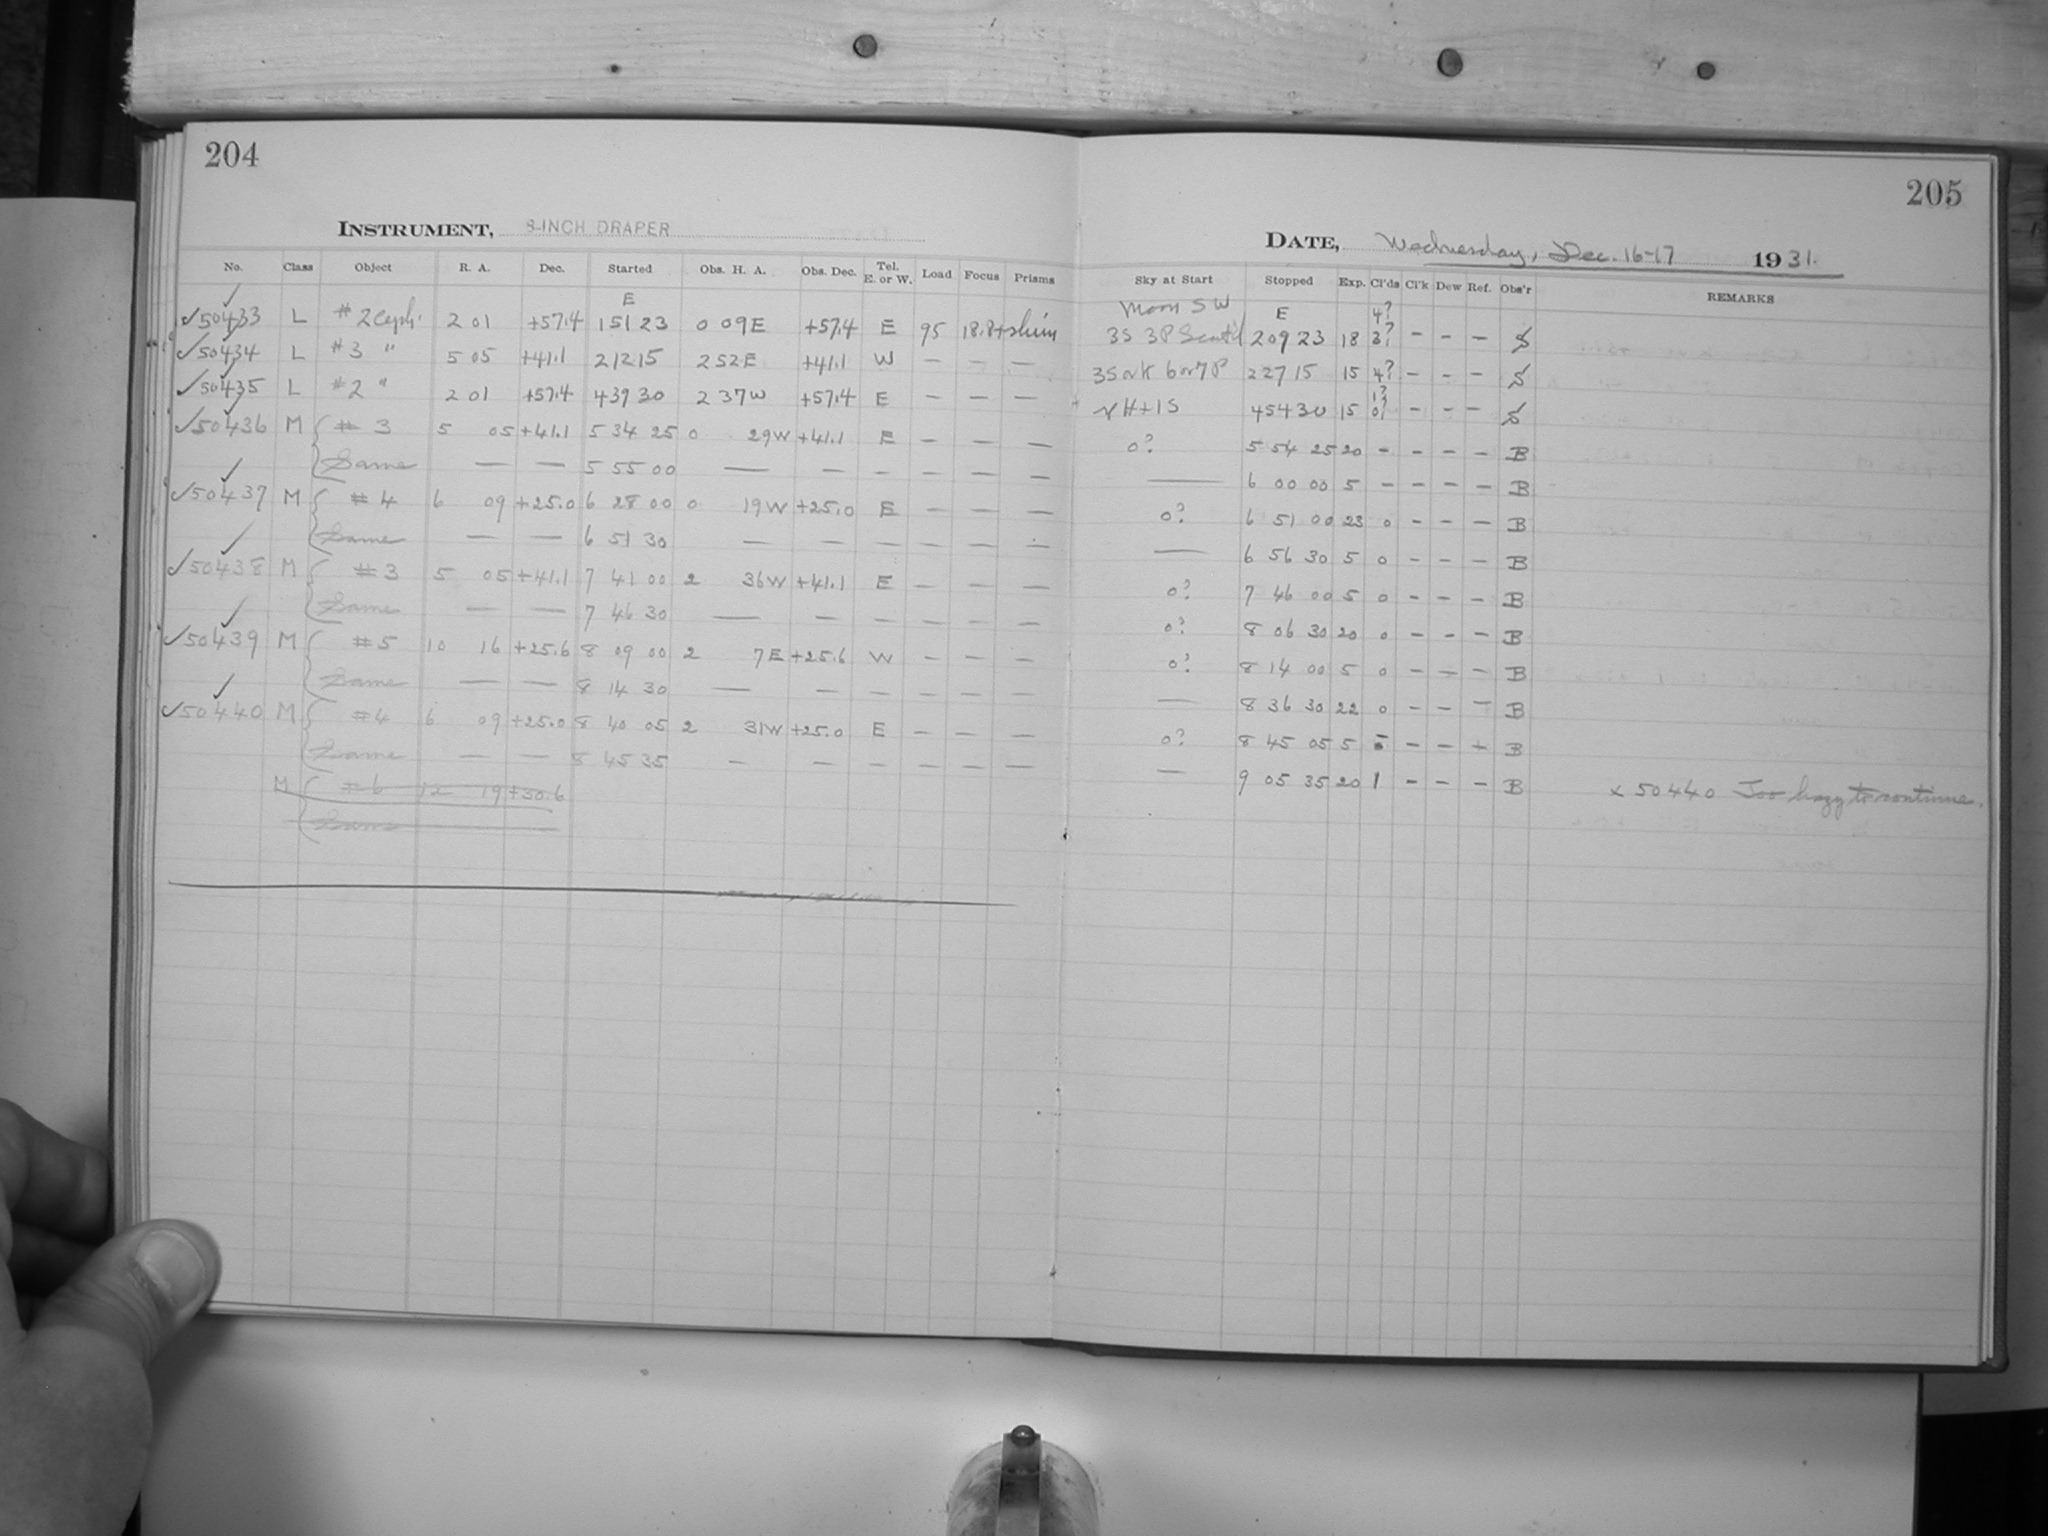 204
INSTRUMENT, 8-INCH DRAPER
No. Class Object R. A. Dec. Started Obs. H. A. Obs. Dec. Tel. E. or W. Load Focus Prisms
E
✓50433 L #2 Ceph. 2 01 +57.4 1 51 23 0 09E +57.4 E 95 18.8+shim
✓50434 L #3 " 5 05 +41.1 2 12 15 2 52E +41.1 W — — —
✓50435 L #2 " 2 01 +57.4 4 39 30 2 37W +57.4 E — — —
✓50436 M # 3 5 05 +41.1 5 34 25 0 29W +41.1 E — — —
Same — — 5 55 00 — — — — — —
✓50437 M #4 6 09 +25.0 6 28 00 0 19W +25.0 E — — —
Same — — 6 51 30 — — — — — —
✓50438 M #3 5 05 +41.1 7 41 00 2 36W +41.1 E — — —
Same — — 7 46 30 — — — — — —
✓50439 M #5 10 16 +25.6 8 09 00 2 7E +25.6 W — — —
Same — — 8 14 30 — — — — — —
✓50440 M #4 6 09 +25.0 8 40 05 2 31W +25.0 E — — —
Same — — 8 45 35 — — — — — —
M #6 12 19 +30.6
Same
205
DATE, Wednesday, Dec. 16-17 1931.
Sky at Start Stopped Exp. Cl'ds Cl'k Dew Ref. Obs'r REMARKS
Moon SW E 4?
3S 3P Scat'd 2 09 23 18 3? — — — S
3S or K 6 or 7P 2 27 15 15 4? — — — S
1?
H+1S 4 54 30 15 0? — — — S
0? 5 54 25 20 — — — — B
— 6 00 00 5 — — — — B
0? 6 51 00 23 0 — — — B
— 6 56 30 5 0 — — — B
0? 7 46 00 5 0 — — — B
0? 8 06 30 20 0 — — — B
0? 8 14 00 5 0 — — — B
— 8 36 30 22 0 — — — B
0? 8 45 05 5 — — — B
— 9 05 35 20 1 — — — B x 50440 Too hazy to continue.